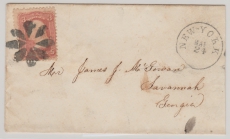 NEW-YORK
Mr James J. McGowan
Savannah
Georgia